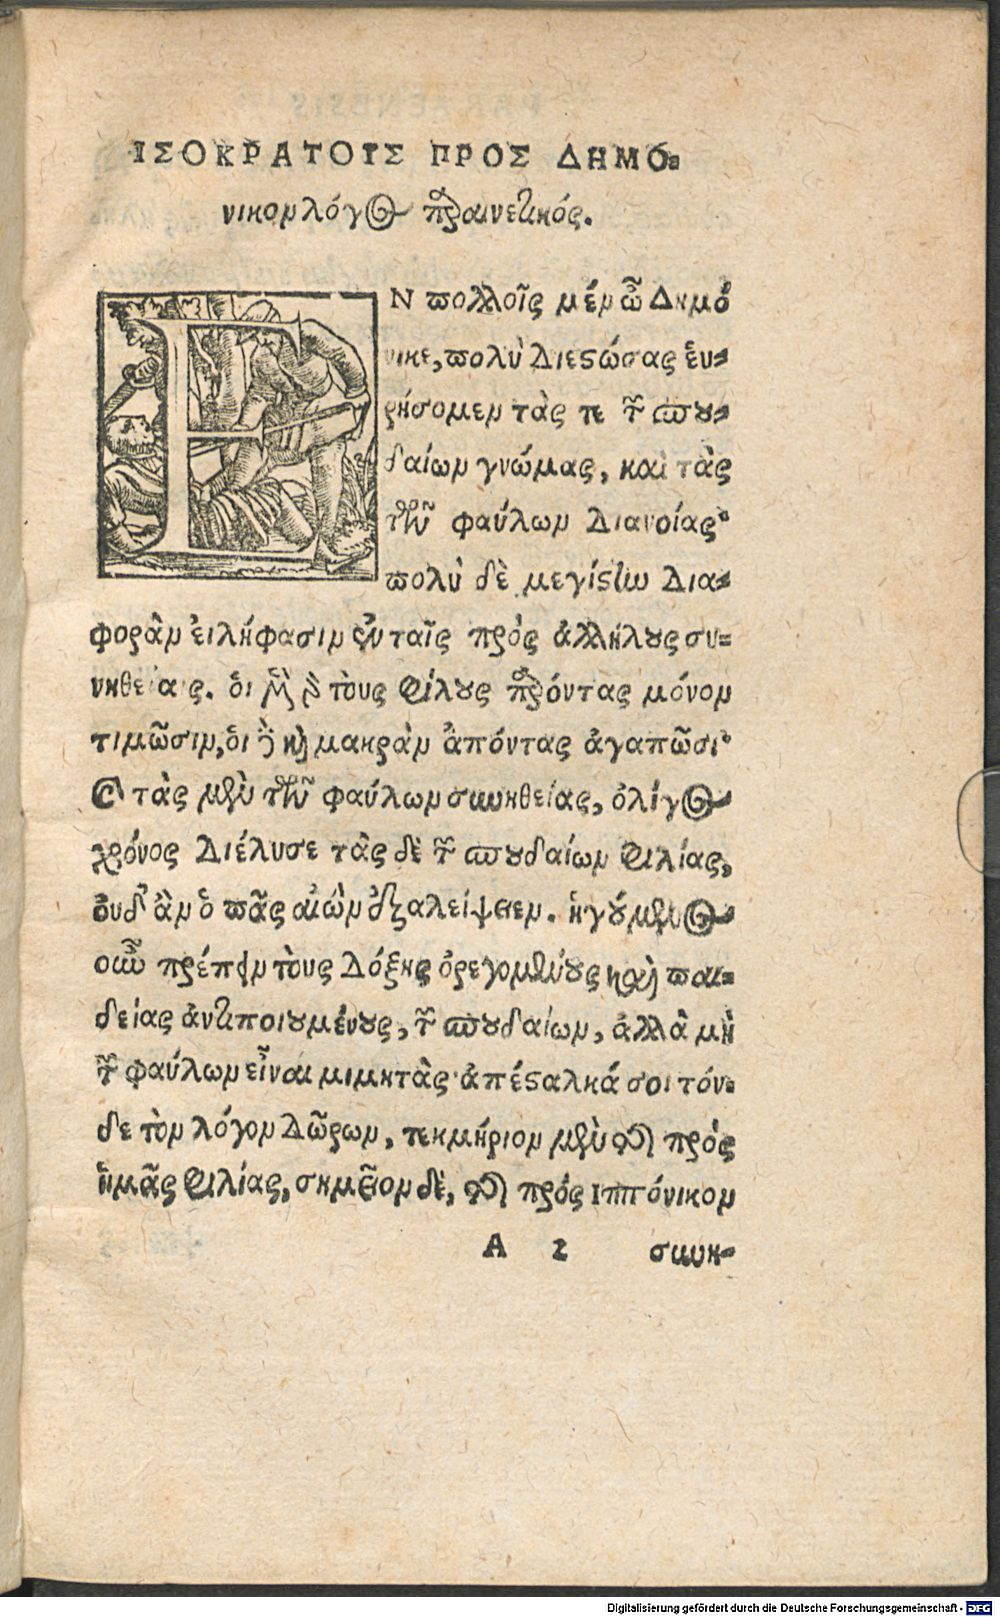 ΙΣΟΚΡΑΤΟΥΣ ΠΡΟΣ ΔΗΜΟ=
νικον λόγος παραινετικός.
ΕΝ πολλοῖς μέν ὦ Δημό
νικε, πολὺ διεστώσας εὑ=
ρήσομεν τὰς τε τῶν σπου=
δαίων γνώμας, καὶ τὰς
τῶν φαύλων διανοίας·
πολὺ δὲ μεγίστην δια=
φορὰν εἰλήφασιν ἐν ταῖς πρὸς ἀλλήλους συ=
νηθείαις. ὁι μὲν γὰρ τοὺς φίλους παρόντας μόνον
τιμῶσιν, ὁι δὲ καὶ μακρὰν ἀπόντας ἀγαπῶσι·
καὶ τὰς μὲν τῶν φαύλων συνηθείας, ὀλίγος
χρόνος διέλυσε τὰς δὲ τῶν σπουδαίων φιλίας,
ὀυδ' ἂν ὁ πᾶς αἰὼν ἐξαλείψειεν. ἡγούμενος
οὖν πρέπειν τοὺς δόξης ὀρεγομένους καὶ παι=
δείας ἀντιποιουμένους, τῶν σπουδαίων, ἀλλὰ μὴ
τῶν φαύλων εἶναι μιμητὰς· ἀπέσταλκά σοι τόν=
δε τὸν λόγον δῶρον, τεκμήριον μὲν τῆς πρὸς
ὑμᾶς φιλίας, σημεῖον δὲ, τῆς πρὸς Ιππόνικον
A 2 συνη=
Digitalisierung gefördert durch die Deutsche Forschungsgemeinschaft - DFG